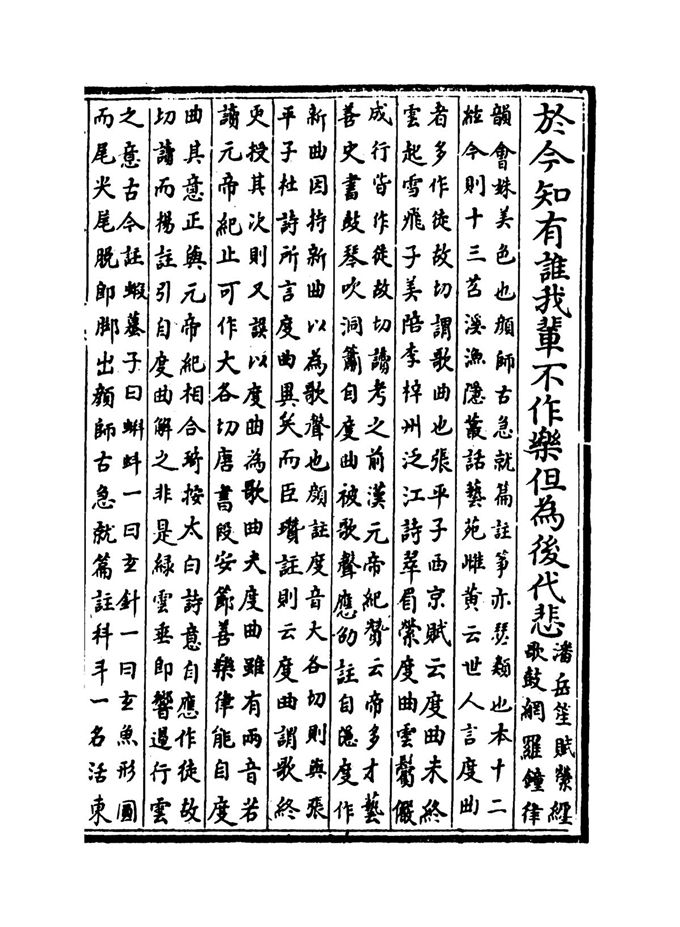 於今知有誰我輩不作樂但為後代悲
潘岳笙賦縈經
歌鼓網羅鐘律
韻會姝美色也顔師古急就篇註箏亦瑟類也本十二
絃今則十三苕溪漁隱叢話藝苑雌黄云世人言度曲
者多作徒故切謂歌曲也張平子西京賦云度曲未終
雲起雪飛子美陪李梓州泛江詩翠眉縈度曲雲鬢儼
成行皆作徒故切讀考之前漢元帝紀贊云帝多才藝
善史書鼓琴吹洞簫自度曲被歌聲應劭註自隱度作
新曲因持新曲以為歌聲也顔註度音大各切則與張
平子杜詩所言度曲異矣而臣瓚註則云度曲謂歌終
更授其次則又誤以度曲為歌曲夫度曲雖有兩音若
讀元帝紀止可作大各切唐書段安節善樂律能自度
曲其意正與元帝紀相合琦按太白詩意自應作徒故
切讀而楊註引自度曲解之非是緑雲垂即響遏行雲
之意古今註蝦蟇子曰蝌蚪一曰玄針一曰玄魚形圓
而尾尖尾脱即脚出顔師古急就篇註科斗一名活東